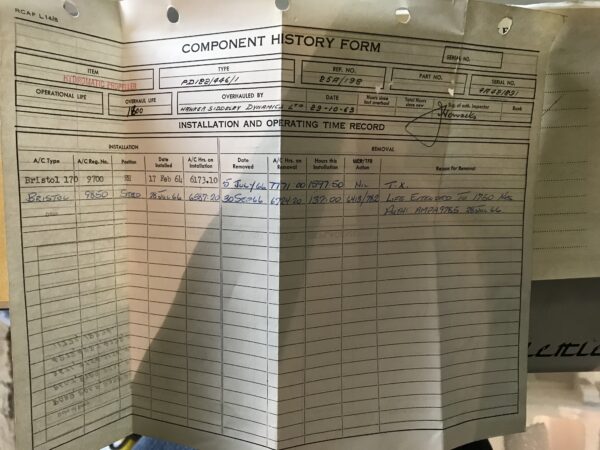 RCAF L.14B
COMPONENT HISTORY FORM
SERIES NO.
ITEM
HYDROMATIC PROPELLER
TYPE
PD182/446/1
REF. NO.
25R/198
PART NO.
SERIAL NO.
OPERATIONAL LIFE
OVERHAUL LIFE
OVERHAULED BY
HAWKER SIDDELEY DYNAMICS LTD
DATE
29-10-63
Hours since last overhaul
Total Hours since new
Sig. of auth. Inspector
Rank
INSTALLATION AND OPERATING TIME RECORD
INSTALLATION
REMOVAL
A/C Type
A/C Reg. No.
Position
Date Installed
A/C Hrs. on Installation
Date Removed
A/C Hrs. on Removal
Hours this Installation
Reason For Removal
Bristol 170 9700 17 Feb 64 6173.10 5 July 66 7771 00 1597.50 Nil T.X.
BRISTOL 9850 STBD 28 Jul 66 30 Sep 66 6724.20 137.00 LIFE EXTENDED TO 1750 Hrs
28 Jul 66